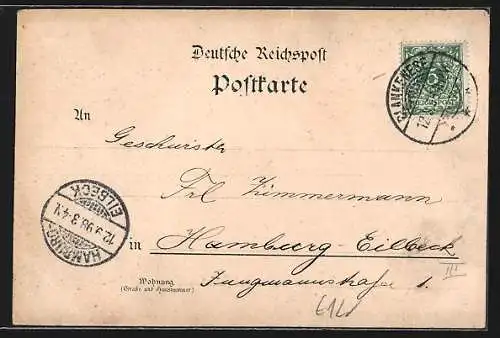 Deutsche Reichspost
Postkarte
An
Geschwister
Frl Zimmermann
in Hamburg-Eilbeck
III
Wohnung
(Straße und Hausnummer)
Jungmannstraße 1.
BLANKENESE
HAMBURG-
EILBECK
12.9.98.3-4N.
5